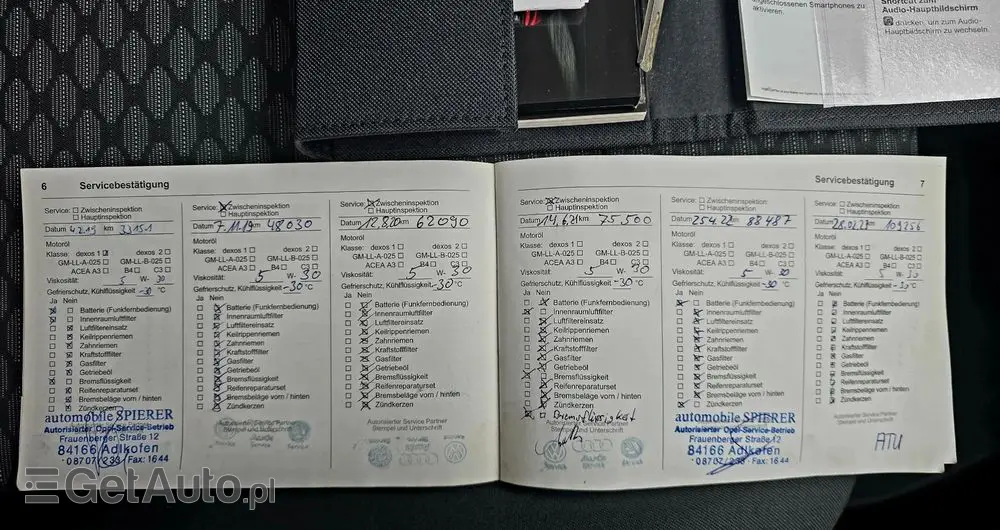 angeschlossenen Smartphones zu
aktivieren.
Shortcut zum
Audio-Hauptbildschirm
drücken, um zum Audio-
Hauptbildschirm zu wechseln.
6 Servicebestätigung
Service: Zwischeninspektion
Hauptinspektion
Datum 4.2.19 km 33151
Motoröl
Klasse: dexos 1 dexos 2
GM-LL-A-025 GM-LL-B-025
ACEA A3 B4 C3
Viskosität: 5 W- 30
Gefrierschutz, Kühlflüssigkeit -30 °C
Ja Nein
Batterie (Funkfernbedienung)
Innenraumluftfilter
Luftfiltereinsatz
Keilrippenriemen
Zahnriemen
Kraftstofffilter
Gasfilter
Getriebeöl
Bremsflüssigkeit
Reifenreparaturset
Bremsbeläge vorn / hinten
Zündkerzen
automobile SPIERER
Autorisierter Opel-Service-Betrieb
Frauenberger Straße 12
84166 Adlkofen
08707/233 · Fax: 1644
Service: Zwischeninspektion
Hauptinspektion
Datum 7.11.19 km 48030
Motoröl
Klasse: dexos 1 dexos 2
GM-LL-A-025 GM-LL-B-025
ACEA A3 B4 C3
Viskosität: 5 W- 30
Gefrierschutz, Kühlflüssigkeit -30 °C
Ja Nein
Batterie (Funkfernbedienung)
Innenraumluftfilter
Luftfiltereinsatz
Keilrippenriemen
Zahnriemen
Kraftstofffilter
Gasfilter
Getriebeöl
Bremsflüssigkeit
Reifenreparaturset
Bremsbeläge vorn / hinten
Zündkerzen
Autorisierter Service Partner
Stempel und Unterschrift
Service: Zwischeninspektion
Hauptinspektion
Datum 12.8.20 km 62090
Motoröl
Klasse: dexos 1 dexos 2
GM-LL-A-025 GM-LL-B-025
ACEA A3 B4 C3
Viskosität: 5 W- 30
Gefrierschutz, Kühlflüssigkeit -30 °C
Ja Nein
Batterie (Funkfernbedienung)
Innenraumluftfilter
Luftfiltereinsatz
Keilrippenriemen
Zahnriemen
Kraftstofffilter
Gasfilter
Getriebeöl
Bremsflüssigkeit
Reifenreparaturset
Bremsbeläge vorn / hinten
Zündkerzen
Autorisierter Service Partner
Stempel und Unterschrift
Servicebestätigung 7
Service: Zwischeninspektion
Hauptinspektion
Datum 14.6.21 km 75.500
Motoröl
Klasse: dexos 1 dexos 2
GM-LL-A-025 GM-LL-B-025
ACEA A3 B4 C3
Viskosität: 5 W- 30
Gefrierschutz, Kühlflüssigkeit -30 °C
Ja Nein
Batterie (Funkfernbedienung)
Innenraumluftfilter
Luftfiltereinsatz
Keilrippenriemen
Zahnriemen
Kraftstofffilter
Gasfilter
Getriebeöl
Bremsflüssigkeit
Reifenreparaturset
Bremsbeläge vorn / hinten
Zündkerzen
Bremsflüssigkeit
Service: Zwischeninspektion
Hauptinspektion
Datum 25.4.22 km 88487
Motoröl
Klasse: dexos 1 dexos 2
GM-LL-A-025 GM-LL-B-025
ACEA A3 B4 C3
Viskosität: 5 W- 30
Gefrierschutz, Kühlflüssigkeit -30 °C
Ja Nein
Batterie (Funkfernbedienung)
Innenraumluftfilter
Luftfiltereinsatz
Keilrippenriemen
Zahnriemen
Kraftstofffilter
Gasfilter
Getriebeöl
Bremsflüssigkeit
Reifenreparaturset
Bremsbeläge vorn / hinten
Zündkerzen
automobile SPIERER
Autorisierter Opel-Service-Betrieb
Frauenberger Straße 12
84166 Adlkofen
08707/233 · Fax: 1644
Service: Zwischeninspektion
Hauptinspektion
Datum km 109256
Motoröl
Klasse: dexos 1 dexos 2
GM-LL-A-025 GM-LL-B-025
ACEA A3 B4 C3
Viskosität: 5 W- 30
Gefrierschutz, Kühlflüssigkeit -30 °C
Ja Nein
Batterie (Funkfernbedienung)
Innenraumluftfilter
Luftfiltereinsatz
Keilrippenriemen
Zahnriemen
Kraftstofffilter
Gasfilter
Getriebeöl
Bremsflüssigkeit
Reifenreparaturset
Bremsbeläge vorn / hinten
Zündkerzen
Autorisierter Service Partner
Stempel und Unterschrift
ATU
GetAuto.pl